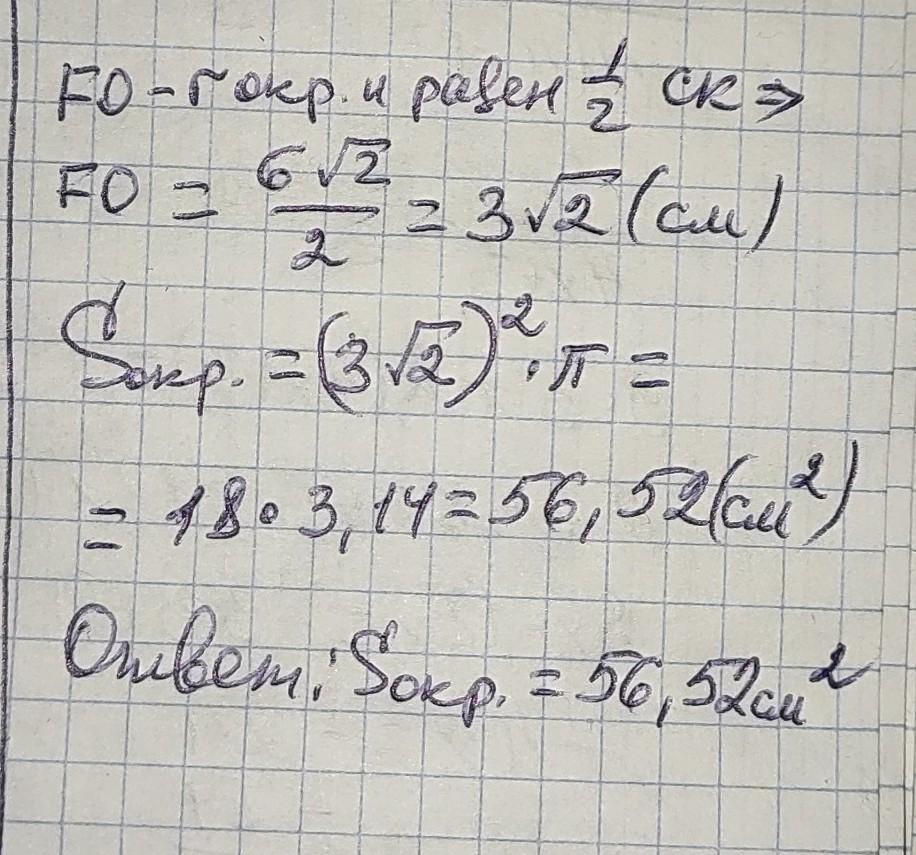 FO - r окр. и равен 1/2 СК ⇒
FO = 6√2/2 = 3√2 (см)
Sокр. = (3√2)² · π =
= 18 · 3,14 = 56,52 (см²)
Ответ: Sокр. = 56,52 см²